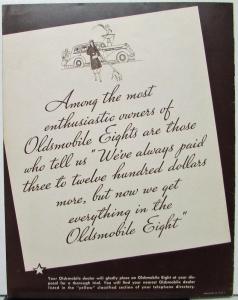 Among the most
enthusiastic owners of
Oldsmobile Eights are those
who tell us "We've always paid
three to twelve hundred dollars
more, but now we get
everything in the
Oldsmobile Eight"
Your Oldsmobile dealer will gladly place an Oldsmobile Eight at your dis-
posal for a thorough trial. You will find your nearest Oldsmobile dealer
listed in the "yellow" classified section of your telephone directory.